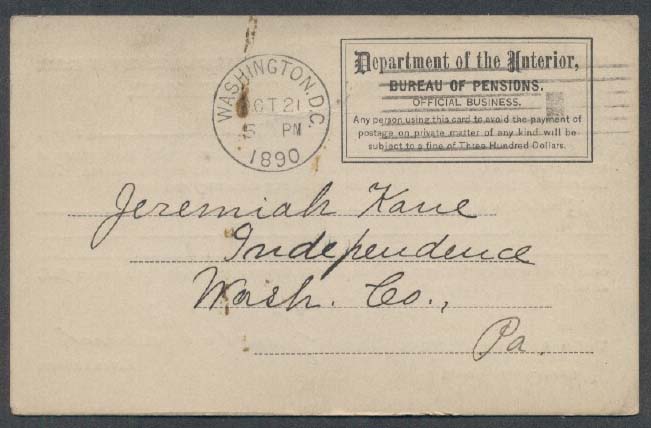 WASHINGTON, D.C.
OCT 21
5 PM
1890
Department of the Interior,
BUREAU OF PENSIONS.
OFFICIAL BUSINESS.
Any person using this card to avoid the payment of
postage on private matter of any kind will be
subject to a fine of Three Hundred Dollars.
Jeremiah Kane
Independence
Wash. Co.,
Pa.